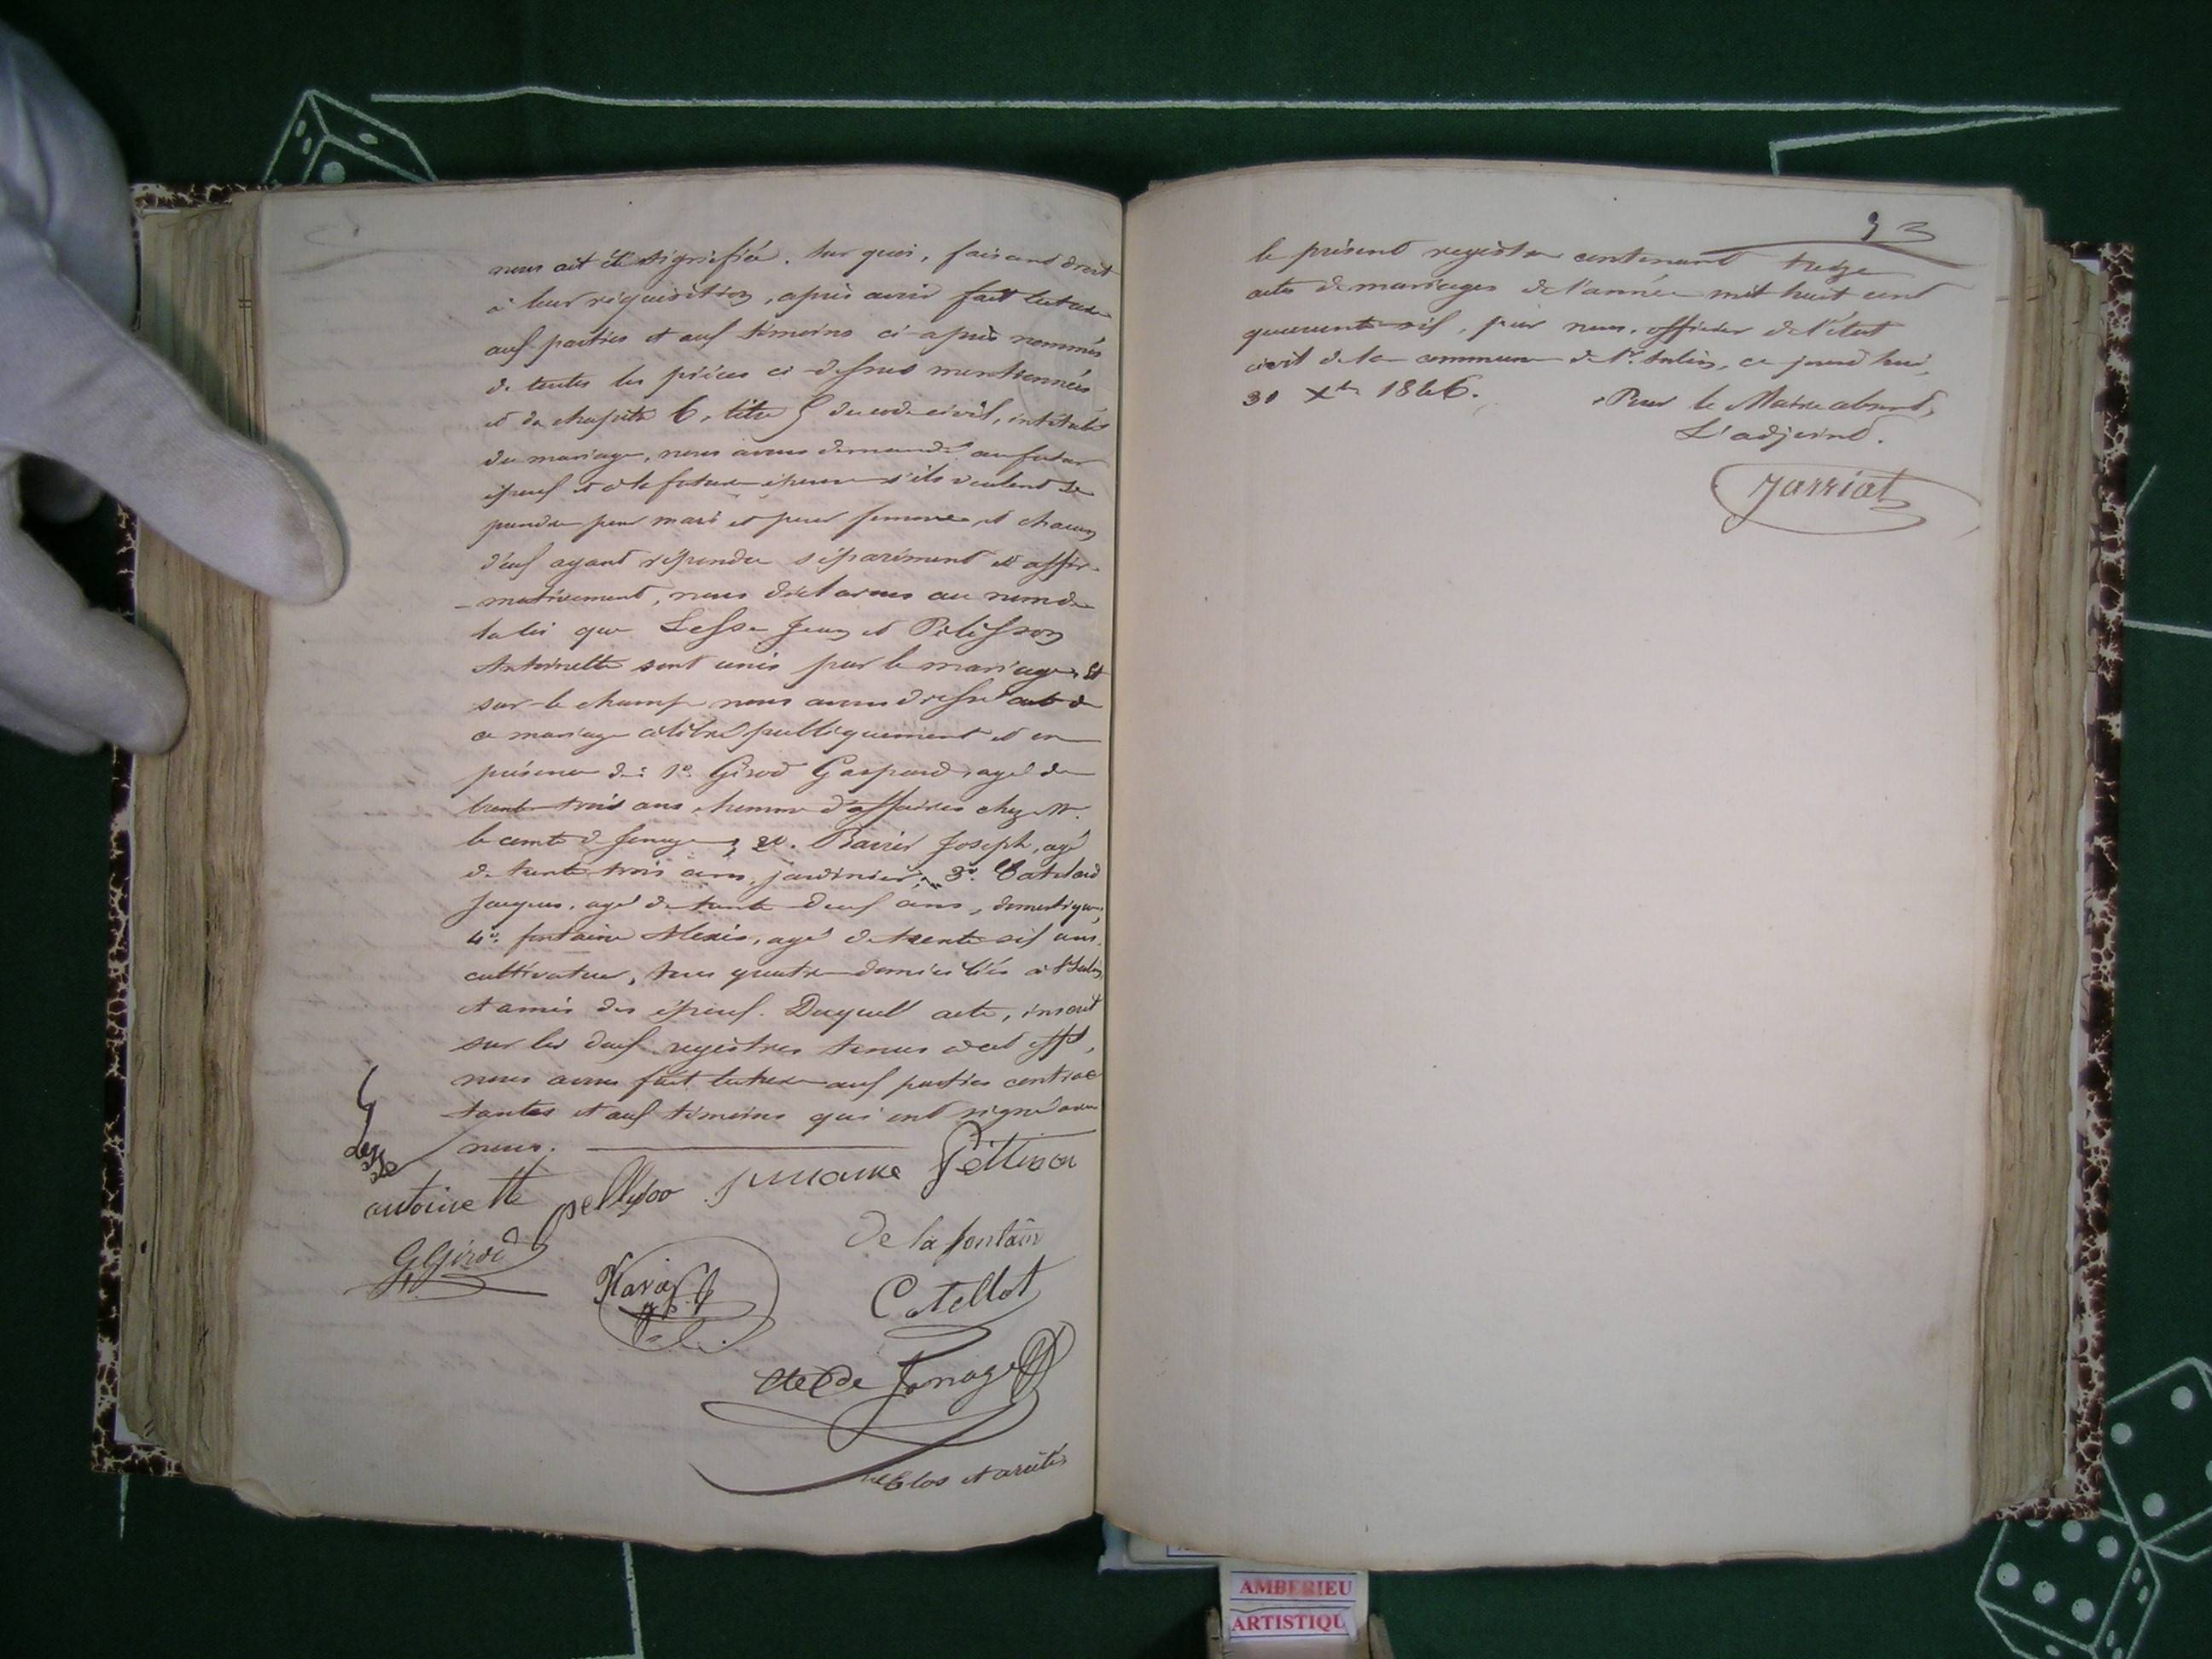 nous ait été signifiée. Sur quoi, faisant droit
à leur réquisition, après avoir fait lecture
aux parties et aux témoins ci-après nommés
de toutes les pièces ci-dessus mentionnées
et du chapitre 6, titre 5 du code civil, intitulé
du mariage, nous avons demandé au futur
époux et à la future épouse s'ils veulent se
prendre pour mari et pour femme, et chacun
d'eux ayant répondu séparément et affir-
-mativement, nous déclarons au nom de
la loi que Lesse Jean et Pelisson
Antoinette sont unis par le mariage. Et
sur le champ nous avons dressé acte de
ce mariage célébré publiquement et en
présence de: 1º. Girod Gaspard, agé de
trente trois ans, homme d'affaires chez Mr.
le comte de Jonage, 2º. Joseph, agé
de trente trois ans, jardinier, 3º.
Jacques, agé de trente deux ans, domestique,
4º. fontaine Alexis, agé de trente six ans,
cultivateur, tous quatre domiciliés à
et amis des époux. Duquel acte, inscrit
sur les deux registres tenus à cet effet,
nous avons fait lecture aux parties contrac
tantes et aux témoins qui ont signé avec
nous.
antoinette
G Girod
De la fontain
Catellot
de Jonage
Clos et arrêté
93
le présent registre contenant treize
actes de mariages de l'année mil huit cent
quarante six, par nous, officier de l'état
civil de la commune de, ce jourd'hui,
30 Xbre 1846.
Pour le Maire absent,
L'adjoint.
Jarriat
AMBERIEU
ARTISTIQU